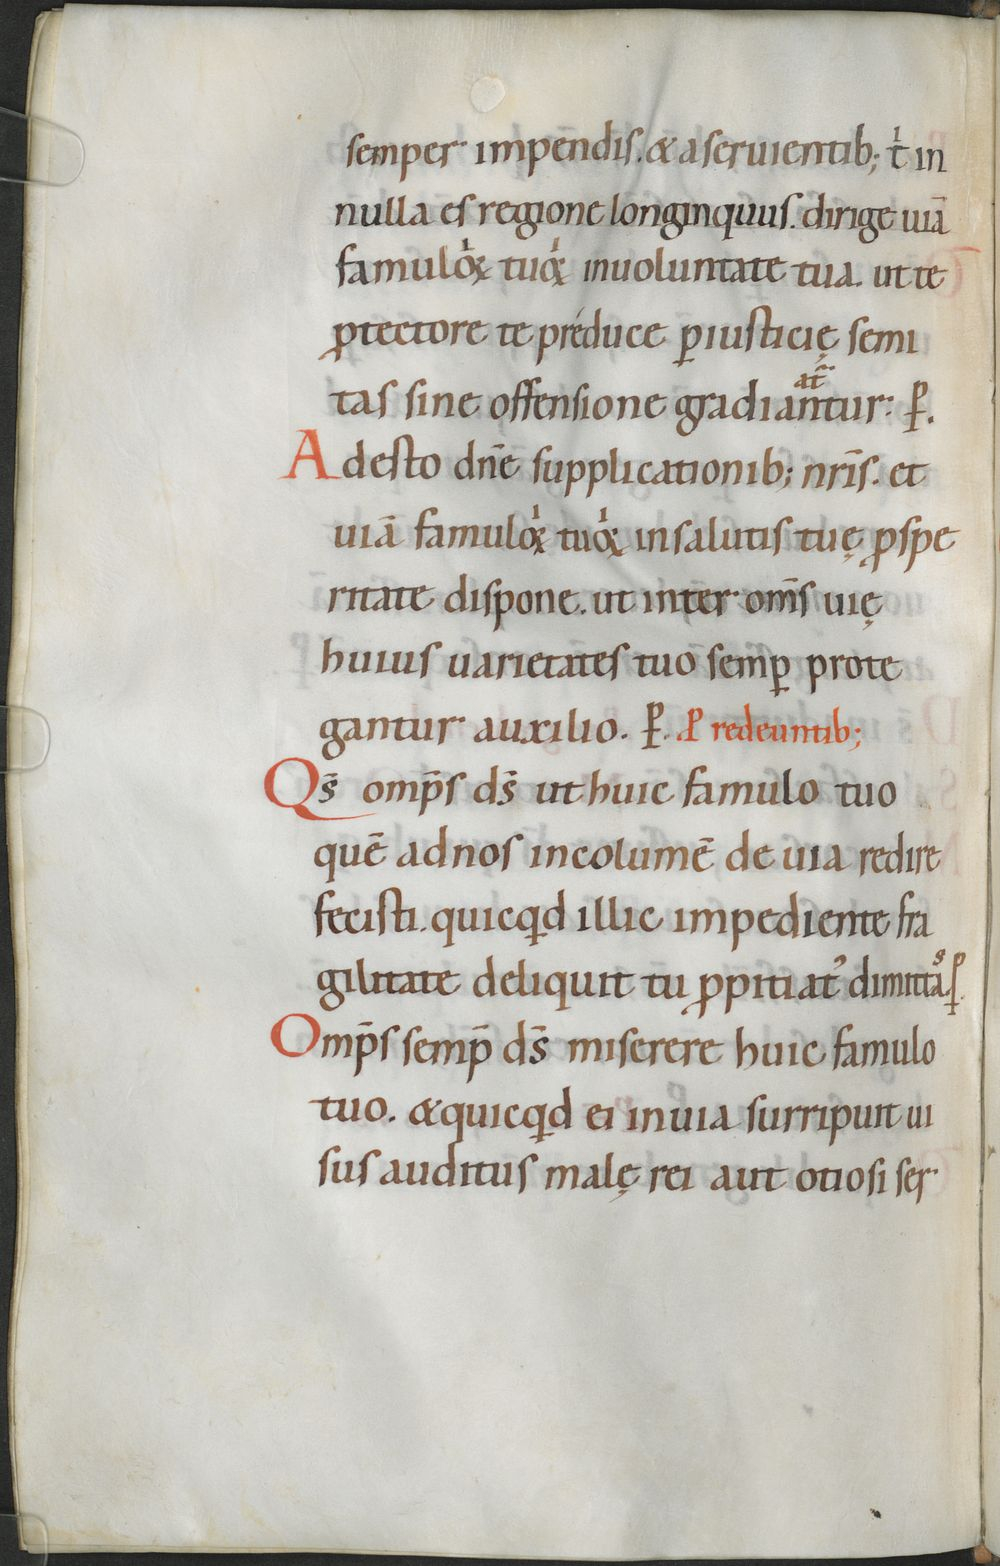 semper impendis. & aseruientib; t̍ in
nulla es regione longinquus. dirige uiā
famuloꝝ tuoꝝ inuoluntate tua. ut te
ꝓtectore te préduce ꝑiusticię semi
tas sine offensione gradiantur: ꝑ.
at̄
Adesto dn̄e supplicationib; nr̄is. et
uiā famuloꝝ tuoꝝ insalutis tuę ꝓspe
ritate dispone. ut inter om̄s uię
huius uarietates tuo semꝑ prote
gantur auxilio. ꝑ. P redeuntib;
Qs̄ omp̄s ds̄ ut huic famulo tuo
quē adnos incolumē de uia redire
fecisti. quicq̇d illic impediente fra
gilitate deliquit tu ꝓpitiat᾽ dimittaˢ. ꝑ.
Omp̄s semp̄ ds̄ miserere huic famulo
tuo. & quicq̇d ei inuia surripuit ui
sus auditus malę rei aut otiosi ser